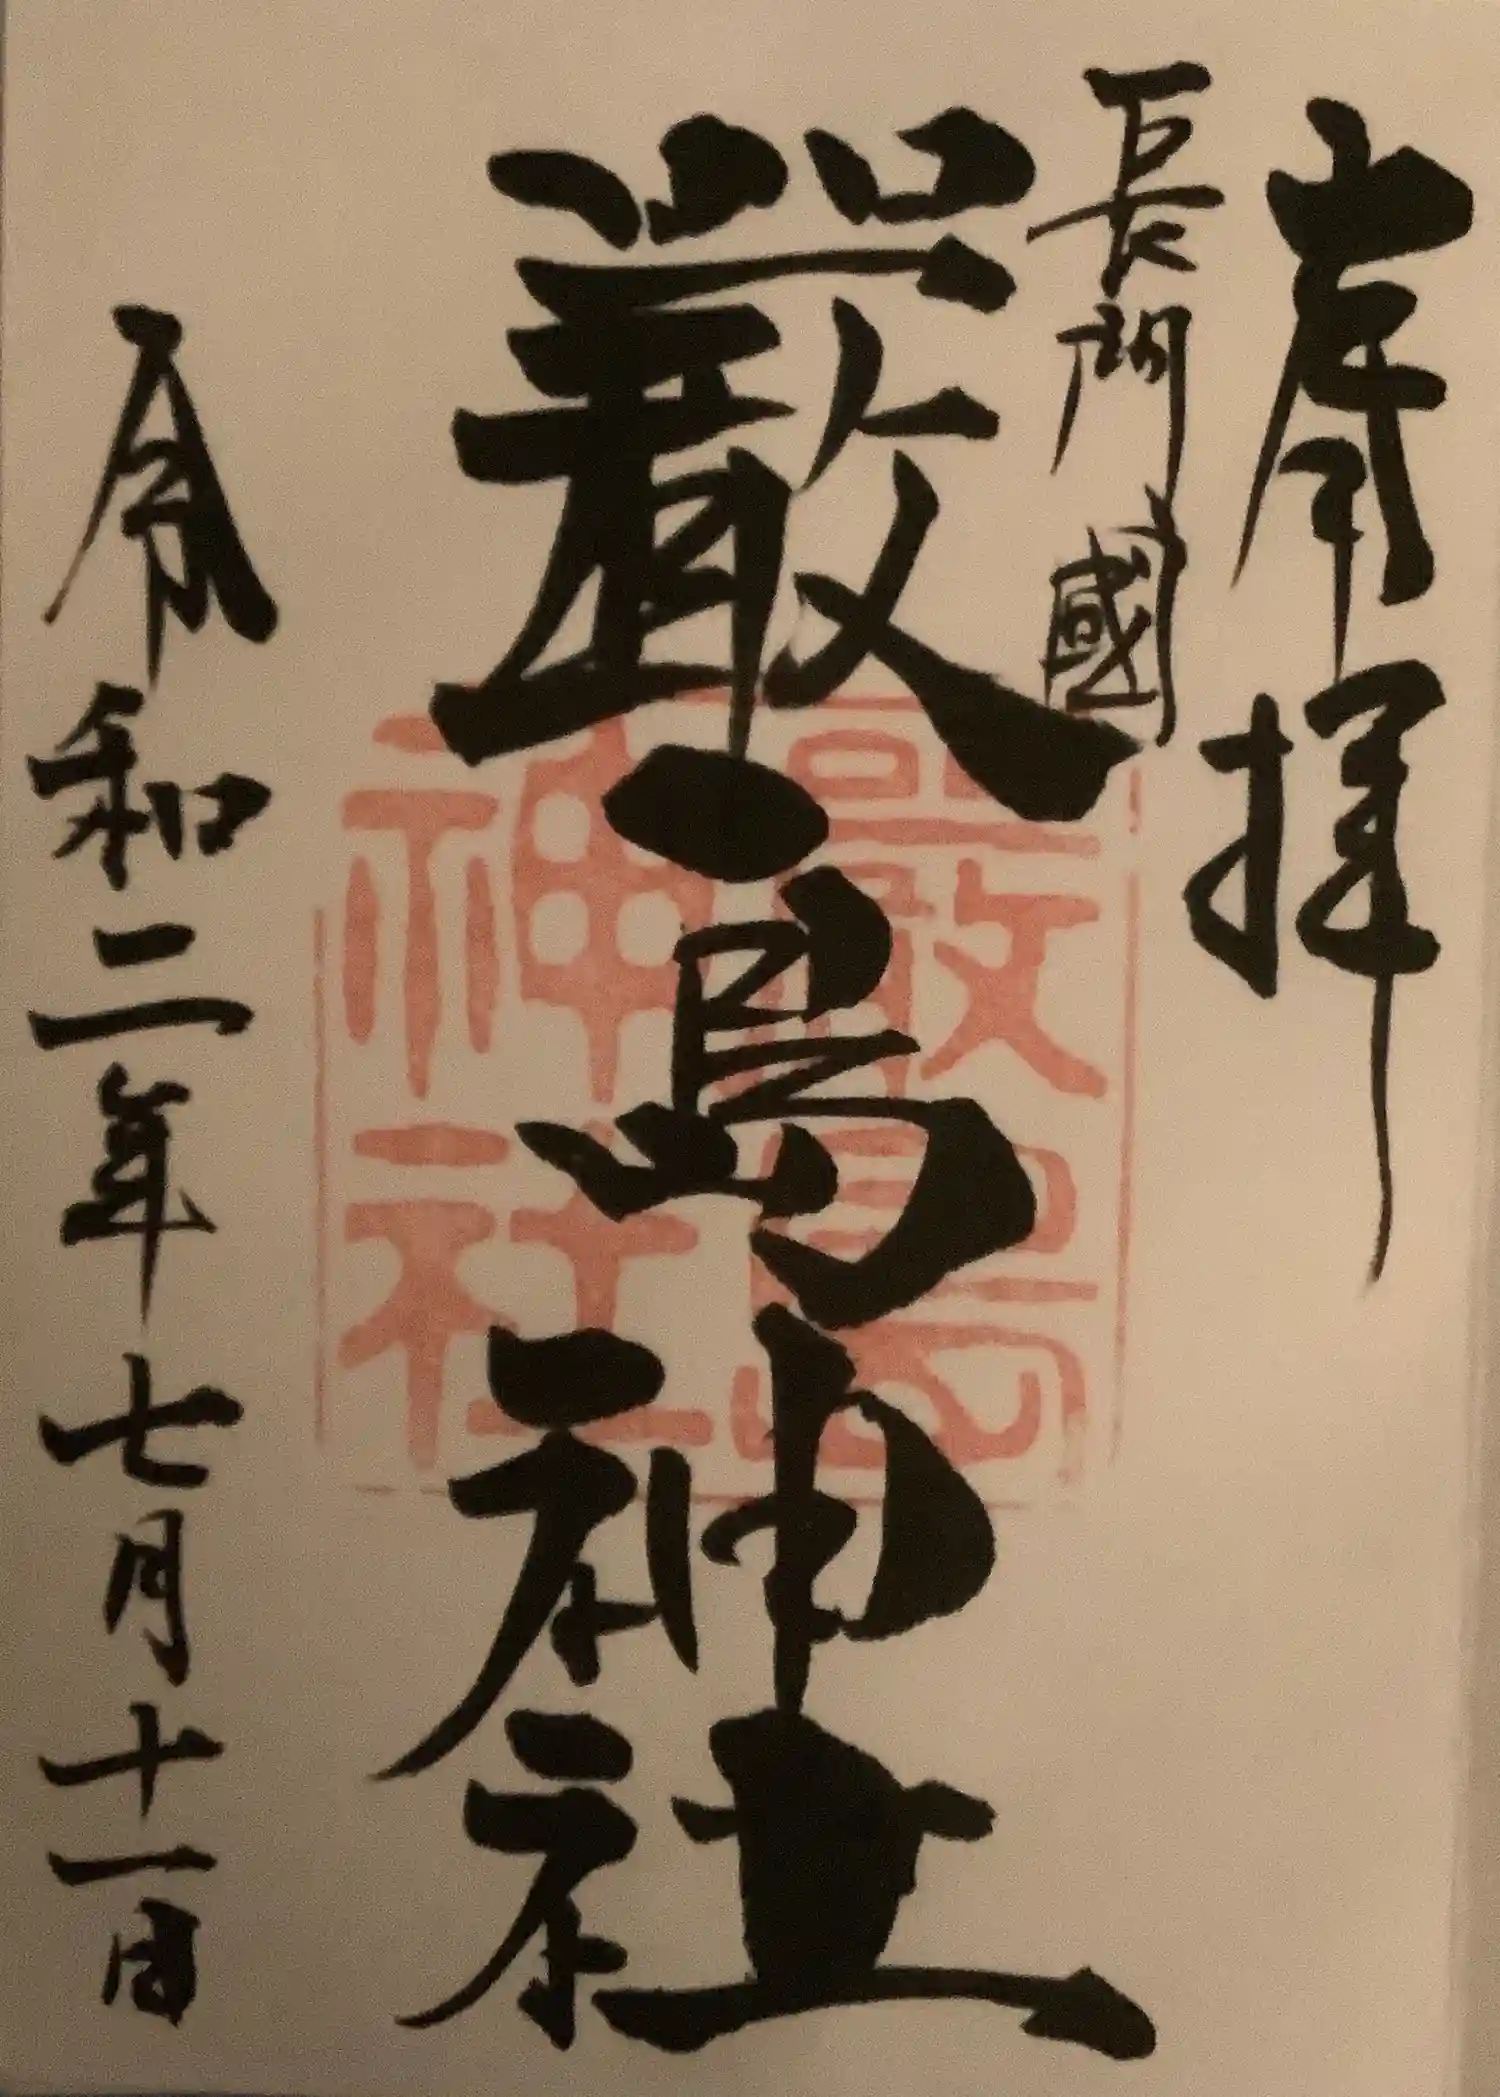 奉拝
長門國
厳島神社
嚴島
神社
令和二年七月十一日